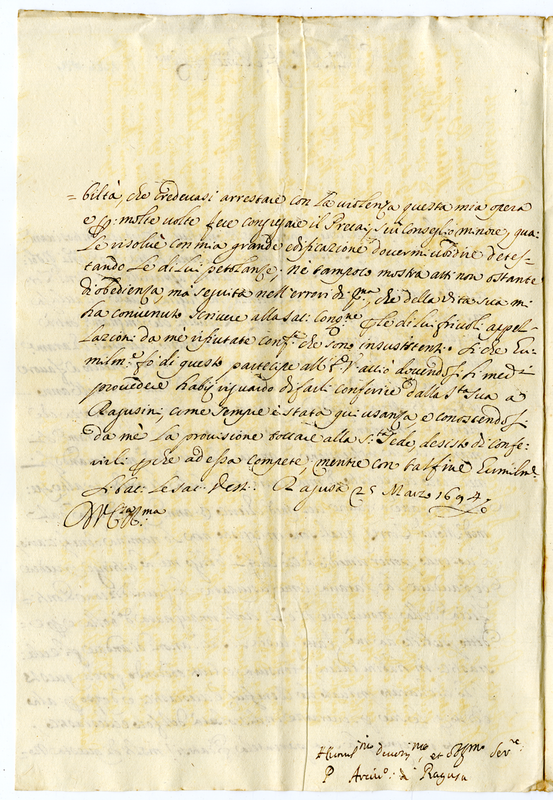 =biltà, che credevasi arrestare con la violenza questa mia opera
e molte volte fece congregare il Pregai, sui Conseglio minore, qua:
le risolvè con mia grande edificazione dovermi ubidire detes-
tando le di lui petolanze, nè tampoco mostra atti non ostante
d'obedienza, mà seguita nell'errori di pma, che della vita sua m:
hà convenuto scrivere alla Sac: Congne le di lui frivoli appel-
lazioni da mè rifiutate come che sono insussistenti. Il che
fò di questo partecipe all' E. V. acciò dovendosi li
provedere habbi risguardo di farli conferire dalla Stà Sua a
Ragusini, come sempre è stata quì usanza e conoscendosi
da mè la provisione toccare alla S: Sede, desisto di confe-
rirli che ad essa compete, mentre con tal fine Eumilme:
li bac: le sac: Vest: Ragusa 25 Marzo 1694
Humilmo Devotmo, et Obmo Serre:
P Arcivo: di Ragusa